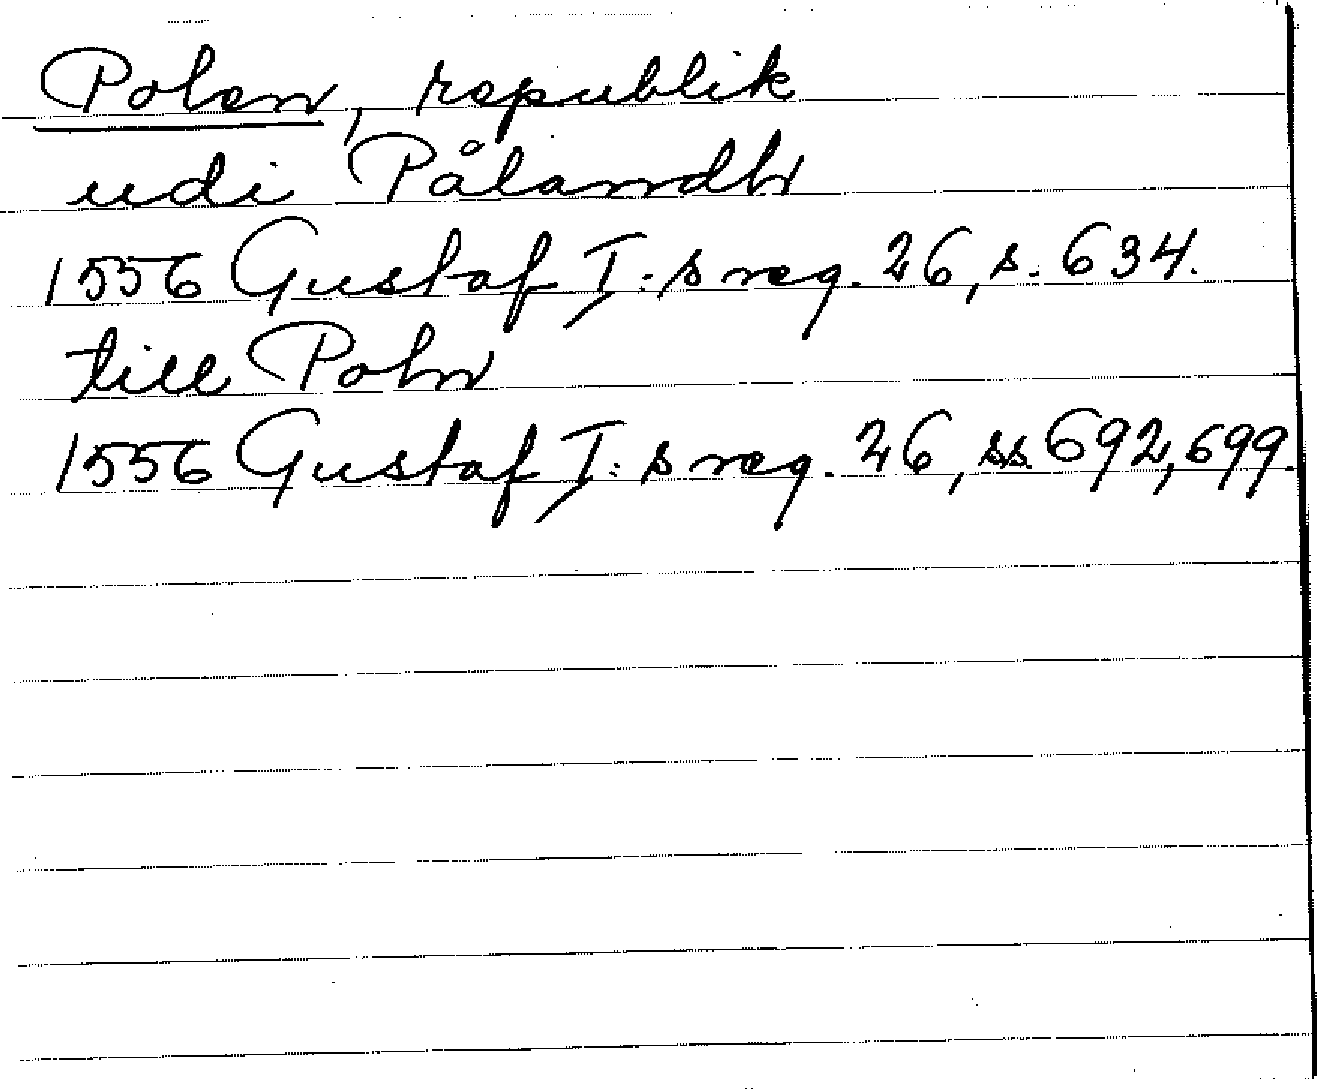 Polen, republik
udi Pålandh
1556 Gustaf I:s reg. 26, s. 634.
till Poln
1556 Gustaf I:s reg. 26, ss. 692, 699.